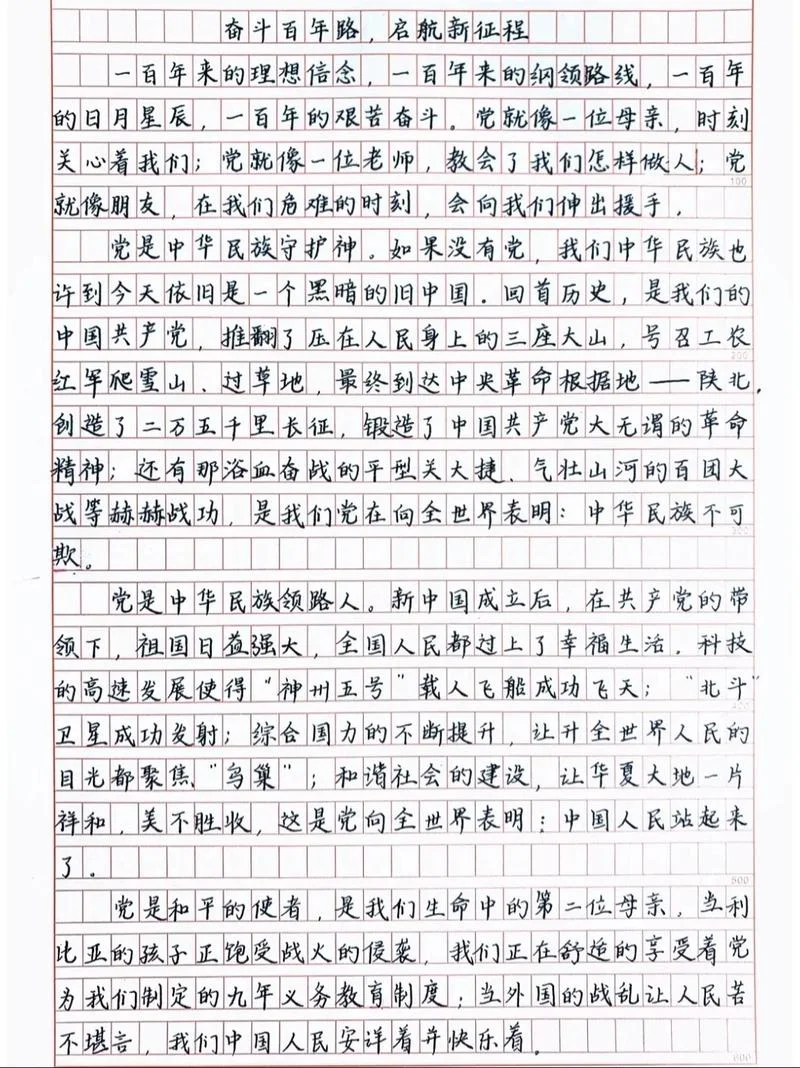 奋斗百年路，启航新征程
一百年来的理想信念，一百年来的纲领路线，一百年
的日月星辰，一百年的艰苦奋斗。党就像一位母亲，时刻
关心着我们；党就像一位老师，教会了我们怎样做人；党
100
就像朋友，在我们危难的时刻，会向我们伸出援手．
党是中华民族守护神。如果没有党，我们中华民族也
许到今天依旧是一个黑暗的旧中国．回首历史，是我们的
中国共产党，推翻了压在人民身上的三座大山，号召工农
200
红军爬雪山、过草地，最终到达中央革命根据地——陕北，
创造了二万五千里长征，锻造了中国共产党大无谓的革命
精神；还有那浴血奋战的平型关大捷、气壮山河的百团大
战等赫赫战功，是我们党在向全世界表明：中华民族不可
300
欺。
党是中华民族领路人。新中国成立后，在共产党的带
领下，祖国日益强大，全国人民都过上了幸福生活．科技
的高速发展使得“神州五号”载人飞船成功飞天；“北斗”
400
卫星成功发射；综合国力的不断提升，让升全世界人民的
目光都聚焦“鸟巢”；和谐社会的建设，让华夏大地一片
祥和，美不胜收，这是党向全世界表明：中国人民站起来
了。
500
党是和平的使者，是我们生命中的第二位母亲．当利
比亚的孩子正饱受战火的侵袭，我们正在舒适的享受着党
为我们制定的九年义务教育制度；当外国的战乱让人民苦
不堪言，我们中国人民安详着并快乐着。
600